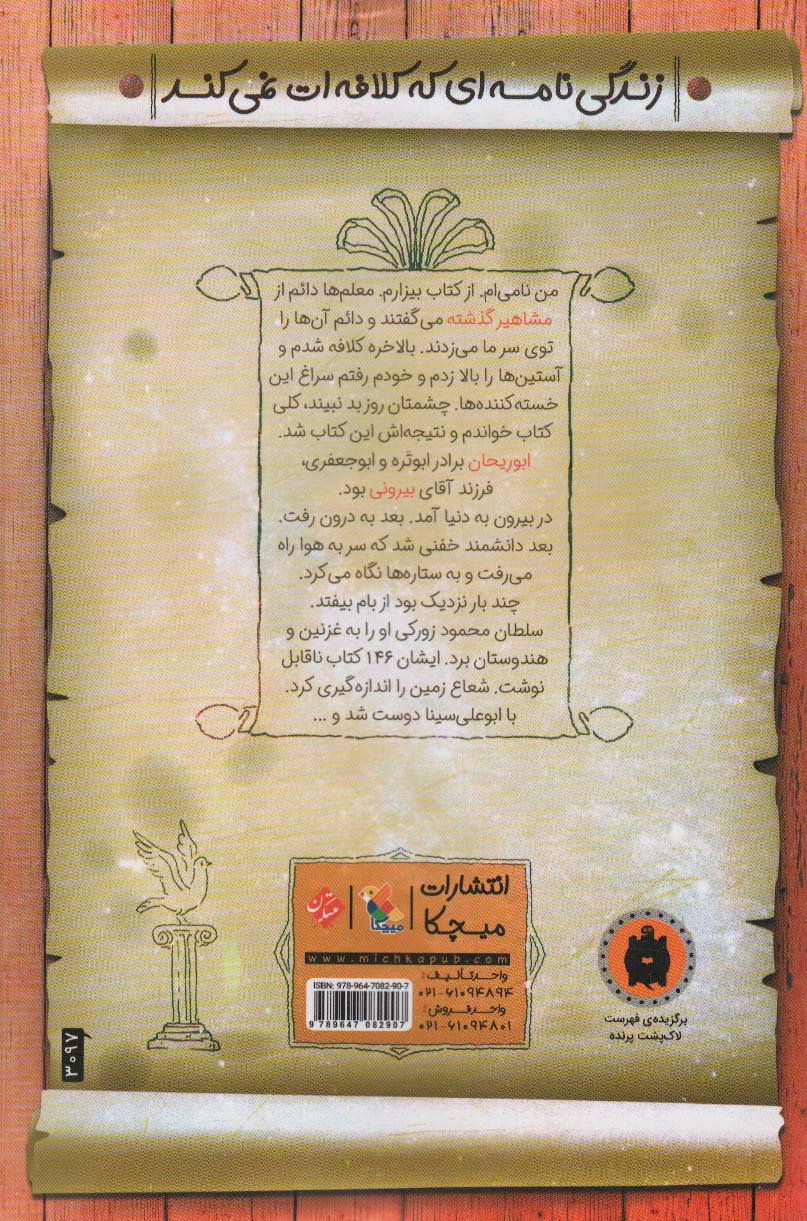 زندگی نامه ای که کلافه ات نمی کند
من نامی‌ام. از کتاب بیزارم. معلم‌ها دائم از
مشاهیر گذشته می‌گفتند و دائم آن‌ها را
توی سر ما می‌زدند. بالاخره کلافه شدم و
آستین‌ها را بالا زدم و خودم رفتم سراغ این
خسته‌کننده‌ها. چشمتان روز بد نبیند، کلی
کتاب خواندم و نتیجه‌اش این کتاب شد.
ابوریحان برادر ابوتَره و ابوجعفری،
فرزند آقای بیرونی بود.
در بیرون به دنیا آمد. بعد به درون رفت.
بعد دانشمند خفنی شد که سر به هوا راه
می‌رفت و به ستاره‌ها نگاه می‌کرد.
چند بار نزدیک بود از بام بیفتد.
سلطان محمود زورکی او را به غزنین و
هندوستان برد. ایشان ۱۴۶ کتاب ناقابل
نوشت. شعاع زمین را اندازه‌گیری کرد.
با ابوعلی‌سینا دوست شد و ...
انتشارات
میچکا
میچکا
مبتکران
www.michkapub.com
واحد تألیف:
۰۲۱-۶۱۰۹۴۸۹۴
واحد فروش:
۰۲۱-۶۱۰۹۴۸۰۱
ISBN: 978-964-7082-90-7
9 789647 082907
برگزیده‌ی فهرست
لاک‌پشت پرنده
۳۰۹۷